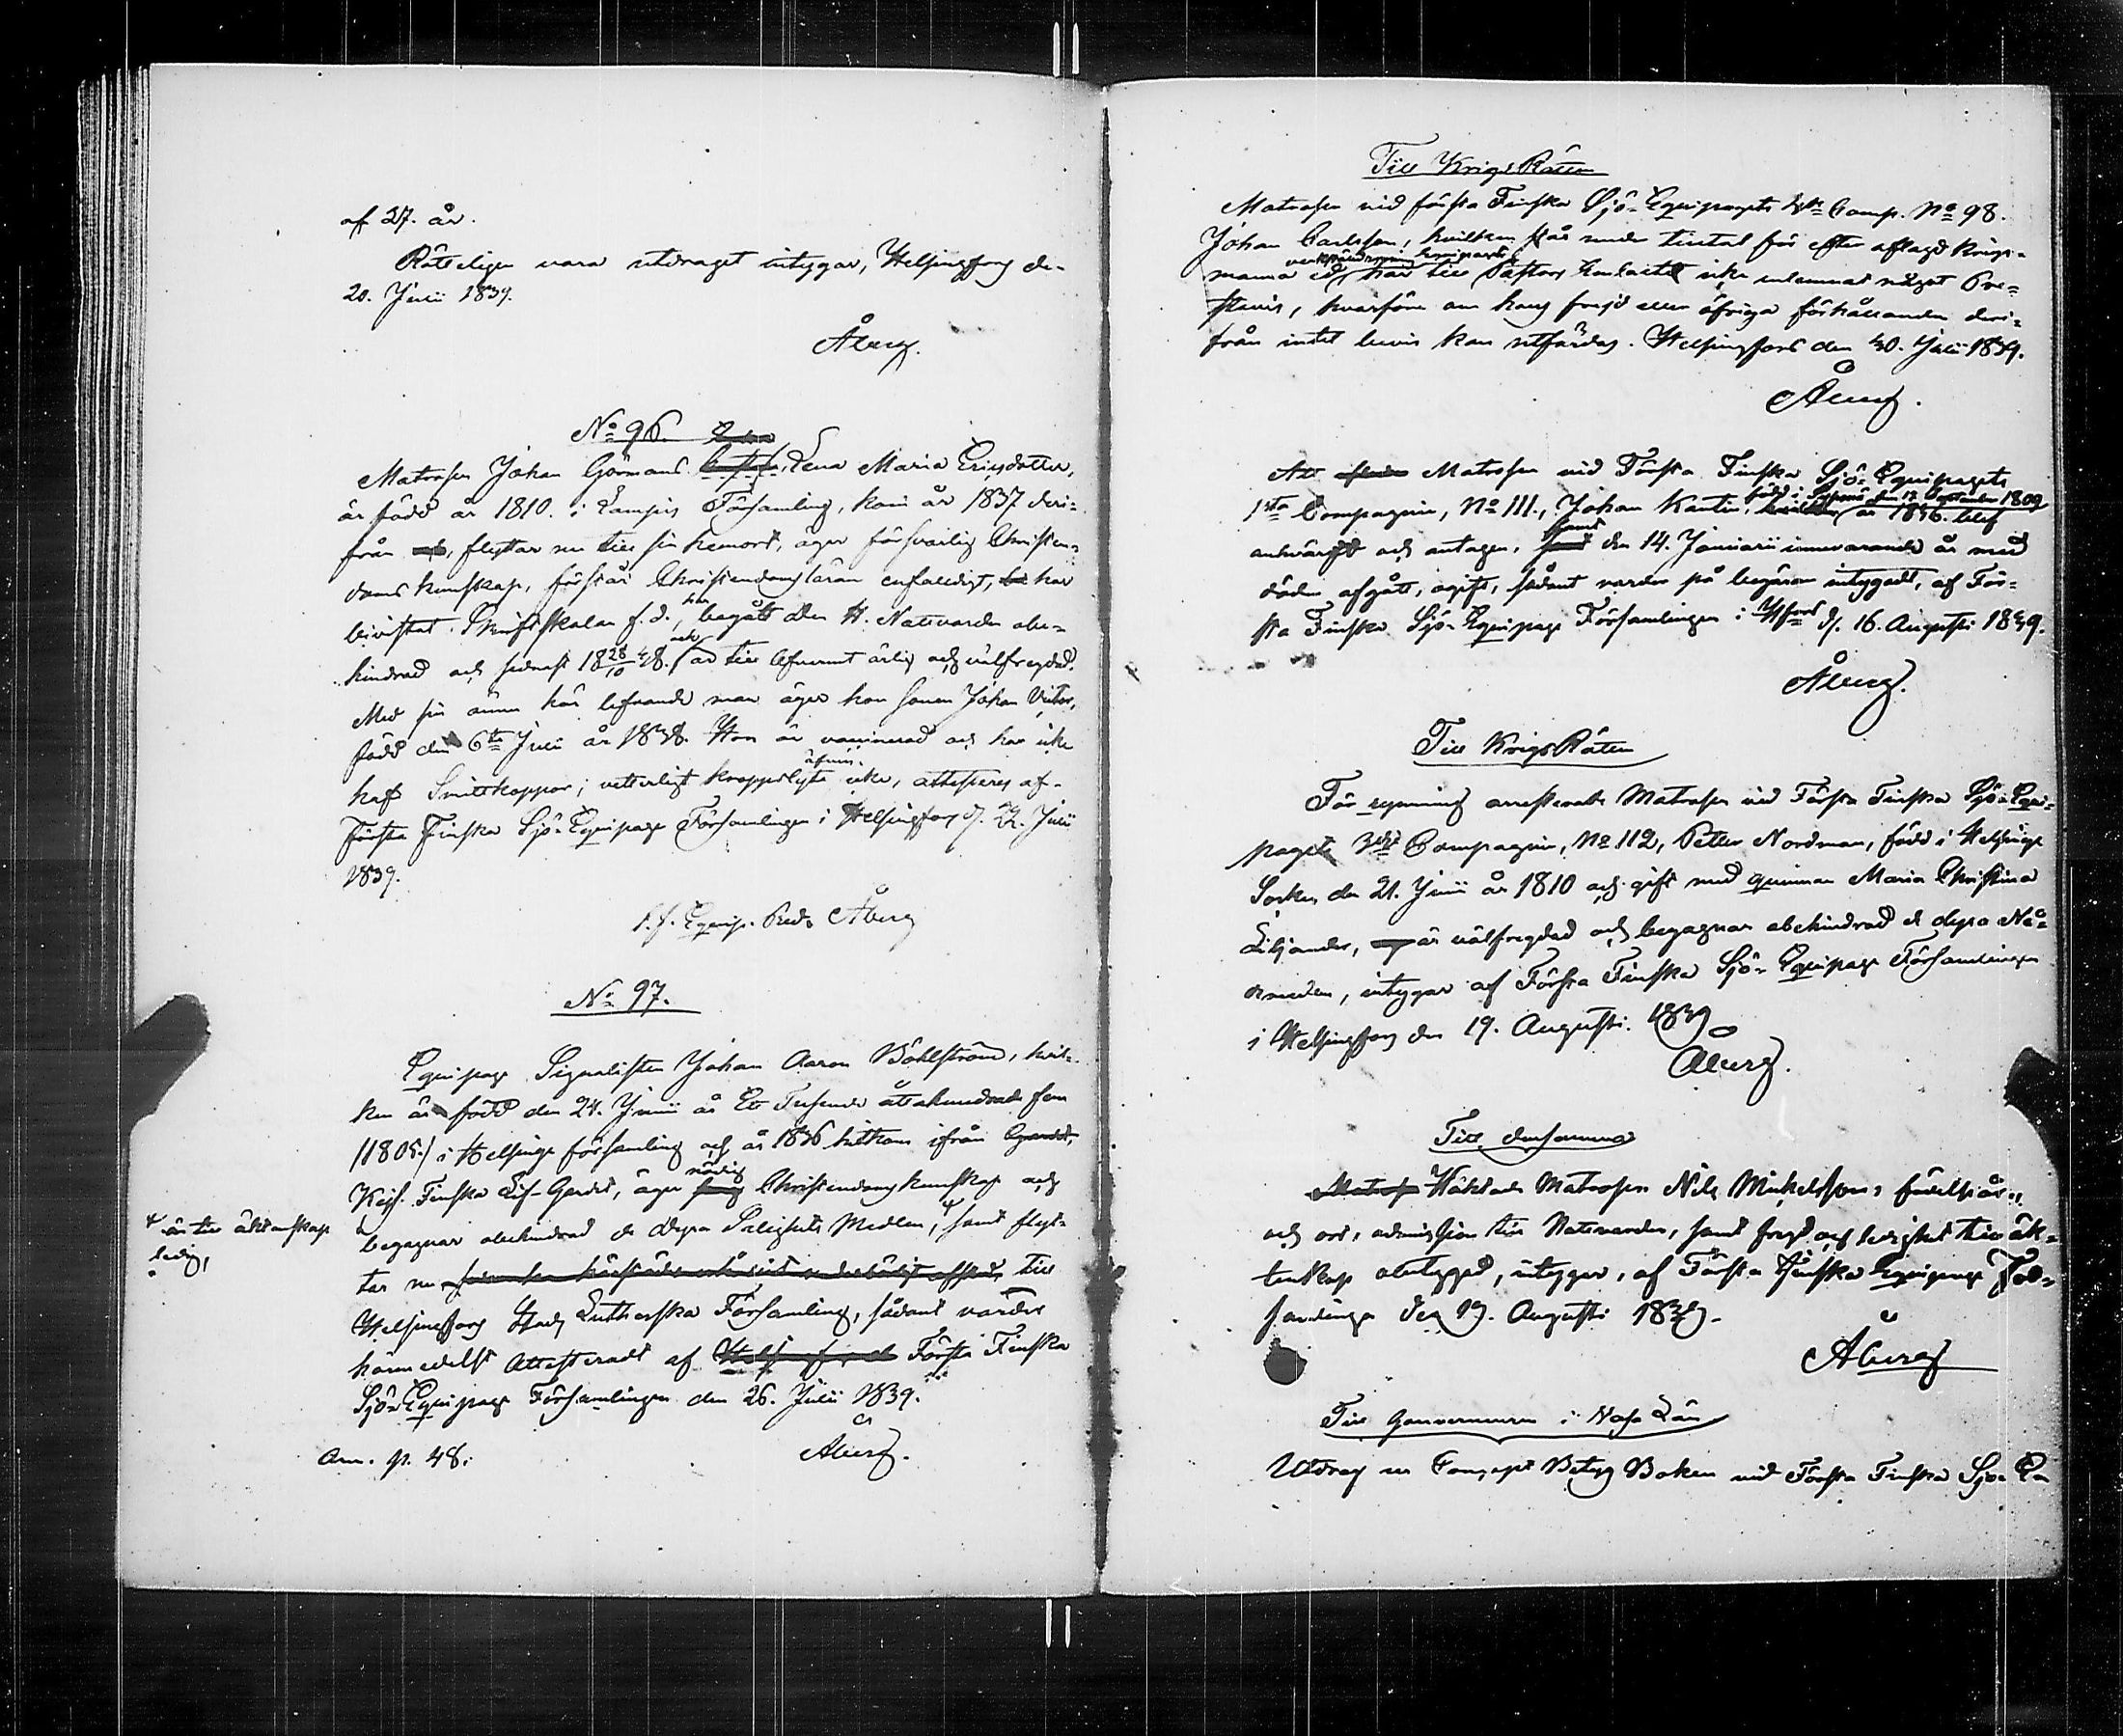 af 27. år.
Rätteligen vara utdraget intygar, Helsingfors de-
20. Julii 1839.
Åberg.
No 96.
Matrosen Johan Görmans hustru, Lena Maria Ericsdotter,
är född år 1810. i Lampis Församling, kom år 1837 deri-
från, flyttar nu till sin hemort, äger försvarlig Christen-
doms kunskap, förstår Christendomsläran enfaldigt, har
bivistat Skriftskolan f. d., har begått den H. Nattvarden obe-
hindrad och sednast 18 28/10 38. och är till åfvannt ärlig och välfregdad.
Med sin ännu här lefvande man äger hon sonen Johan Victor,
född den 6te Julii år 1838. Hon är vaccinerad och har icke
haft Smittkoppor; vetterligt kroppslyte äfven icke, attesteras af
Första Finska Sjö-Equipage Församlingen i Helsingfors d. 22. Julii
1839.
t. f. Equip. Pred. Åberg
No 97.
Equipage Signalisten Johan Aaron Böhlström, hvil-
ken är född den 24. Junii år Ett Tusende åttahundrade fem
(1805.) i Helsinge församling och år 1836 hitkom ifrån
Kejs. Finska Lif-Gardet, äger nödig Christendoms kunskap och
begagnar obehindrad de dyra Salighets Medlen, + samt flyt-
+ är till äktenskap
ledig,
tar nu till
Helsingfors Stads Lutherska Församling, sådant varder
härmedelst Attesteradt af Första Finska
Sjö-Equipage Församlingen den 26. Julii 1839.
Ann. p. 48.
Åberg.
Till KrigsRätten
Matrosen vid första Finska Sjö-Equipagets Comp. No 98.
Johan Carlsson, hvilken står under tiltal för efter aflagd krigs-
manna ed har till Pastors Embetet icke inlemnat något Pre-
stbevis, hvarföre om hans frejd eller öfriga förhållanden deri-
från intet bevis kan utfärdas. Helsingfors den 30. Julii 1839.
Åberg.
Att Matrosen vid Första Finska Sjö-Equipagets
1sta Compagnie, No 111., Johan Kantin, född i den 12 September 1809
år 1836. blef
antvärfd och antagen, samt den 14. Januarii innevarande år med
döden afgått, ogift, sådant varder på begäran intygadt, af För-
sta Finska Sjö-Equipage Församlingen i Hfors d. 16. Augusti 1839.
Åberg.
Till KrigsRätten
För rymning arresterade Matrosen vid Första Finska Sjö-Equi-
pagets 3dje Compagnie, No 112, Petter Nordman, född i Helsinge
Socken den 21. Junii år 1810 och gift med qvinnan Maria Christina
Liljander, är välfregdad och begagnar obehindrad de dyra Nå-
demedlen, intygar af Första Finska Sjö-Equipage Församlingen
i Helsingfors den 19. Augusti. 1839
Åberg.
Till densamma
Häktade Matrosen Nils Mickelssons födelseår,
och ort, admission till Nattvarden, samt fregd och ledighet till äk-
tenskap obetygad, intygar, af Första Finska Equipage För-
samlingen den 19. Augusti 1839.
Åberg
Till Gouverneuren i Wasa Län
Utdrag ur Concept Betyg Boken vid Första Finska Sjö-E-